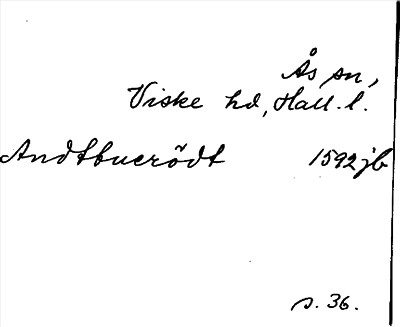 Ås sn,
Viske hd, Hall. l.
Andtbuerödt 1592 jb
s. 36.